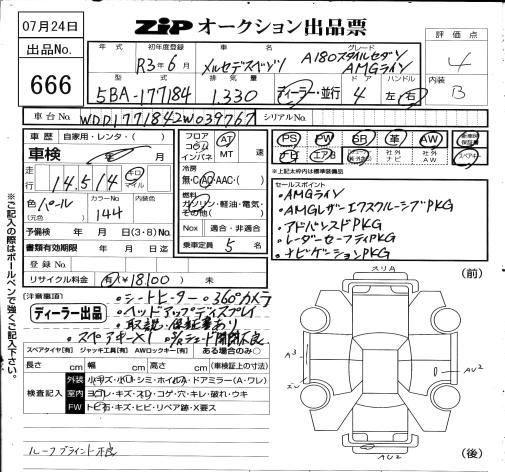 07月24日
ZIP オークション出品票
出品No.
666
年式 初年度登録 車名 グレード
R3年6月 メルセデスベンツ A180スタイルセダン
AMGライン
型式 排気量 ドア ハンドル
5BA-177184 1,330 ディーラー・並行 4 左・右
評価点
4
内装
B
車台No. WDD1771842W039767 シリアルNo.
車歴 自家用・レンタ・( )
車検 年 月
走行 14,514 キロ マイル
色 パール カラーNo. 144 内装色
(元色)
予備検 年 月 日(3・8)No.
書類有効期限 年 月 日迄
登録No.
リサイクル料金 有 ¥18,00) 未
フロア コラム インパネ AT MT 速
冷房
無・C・AC・AAC・( )
燃料
ガソリン・軽油・電気・その他( )
Nox 適合・非適合
乗車定員 5 名
PS PW SR 革 AW 新車時保証書
ナビ エアB 社外ナビ 社外AW スペアキー
*上記太枠内は標準装備品
セールスポイント
・AMGライン
・AMGレザーエクスクルーシブPKG
・アドバンスドPKG
・レーダーセーフティPKG
・ナビゲーションPKG
(注意事項)
ディーラー出品
・シートヒーター ・360°カメラ
・ヘッドアップディスプレイ
・取説・保証書あり
・スペアキー×1 開閉不良
スペアタイヤ[有] ジャッキ工具[有] AWロックキー[有] ある場合のみ○
長さ cm 幅 cm 高さ cm (車検証上の寸法)
検査記入
外装 小キズ・小凹・シミ・ホイルA・ドアミラー(A・ワレ)
室内 ヨゴレ・キズ・スレ・コゲ・穴・キレ・破れ・ウキ
FW トビ石・キズ・ヒビ・リペア跡・X要ス
ルーフブラインド不良
※ご記入の際はボールペンで強くご記入下さい。
スリA
(前)
A3
AU2
AU2
(後)